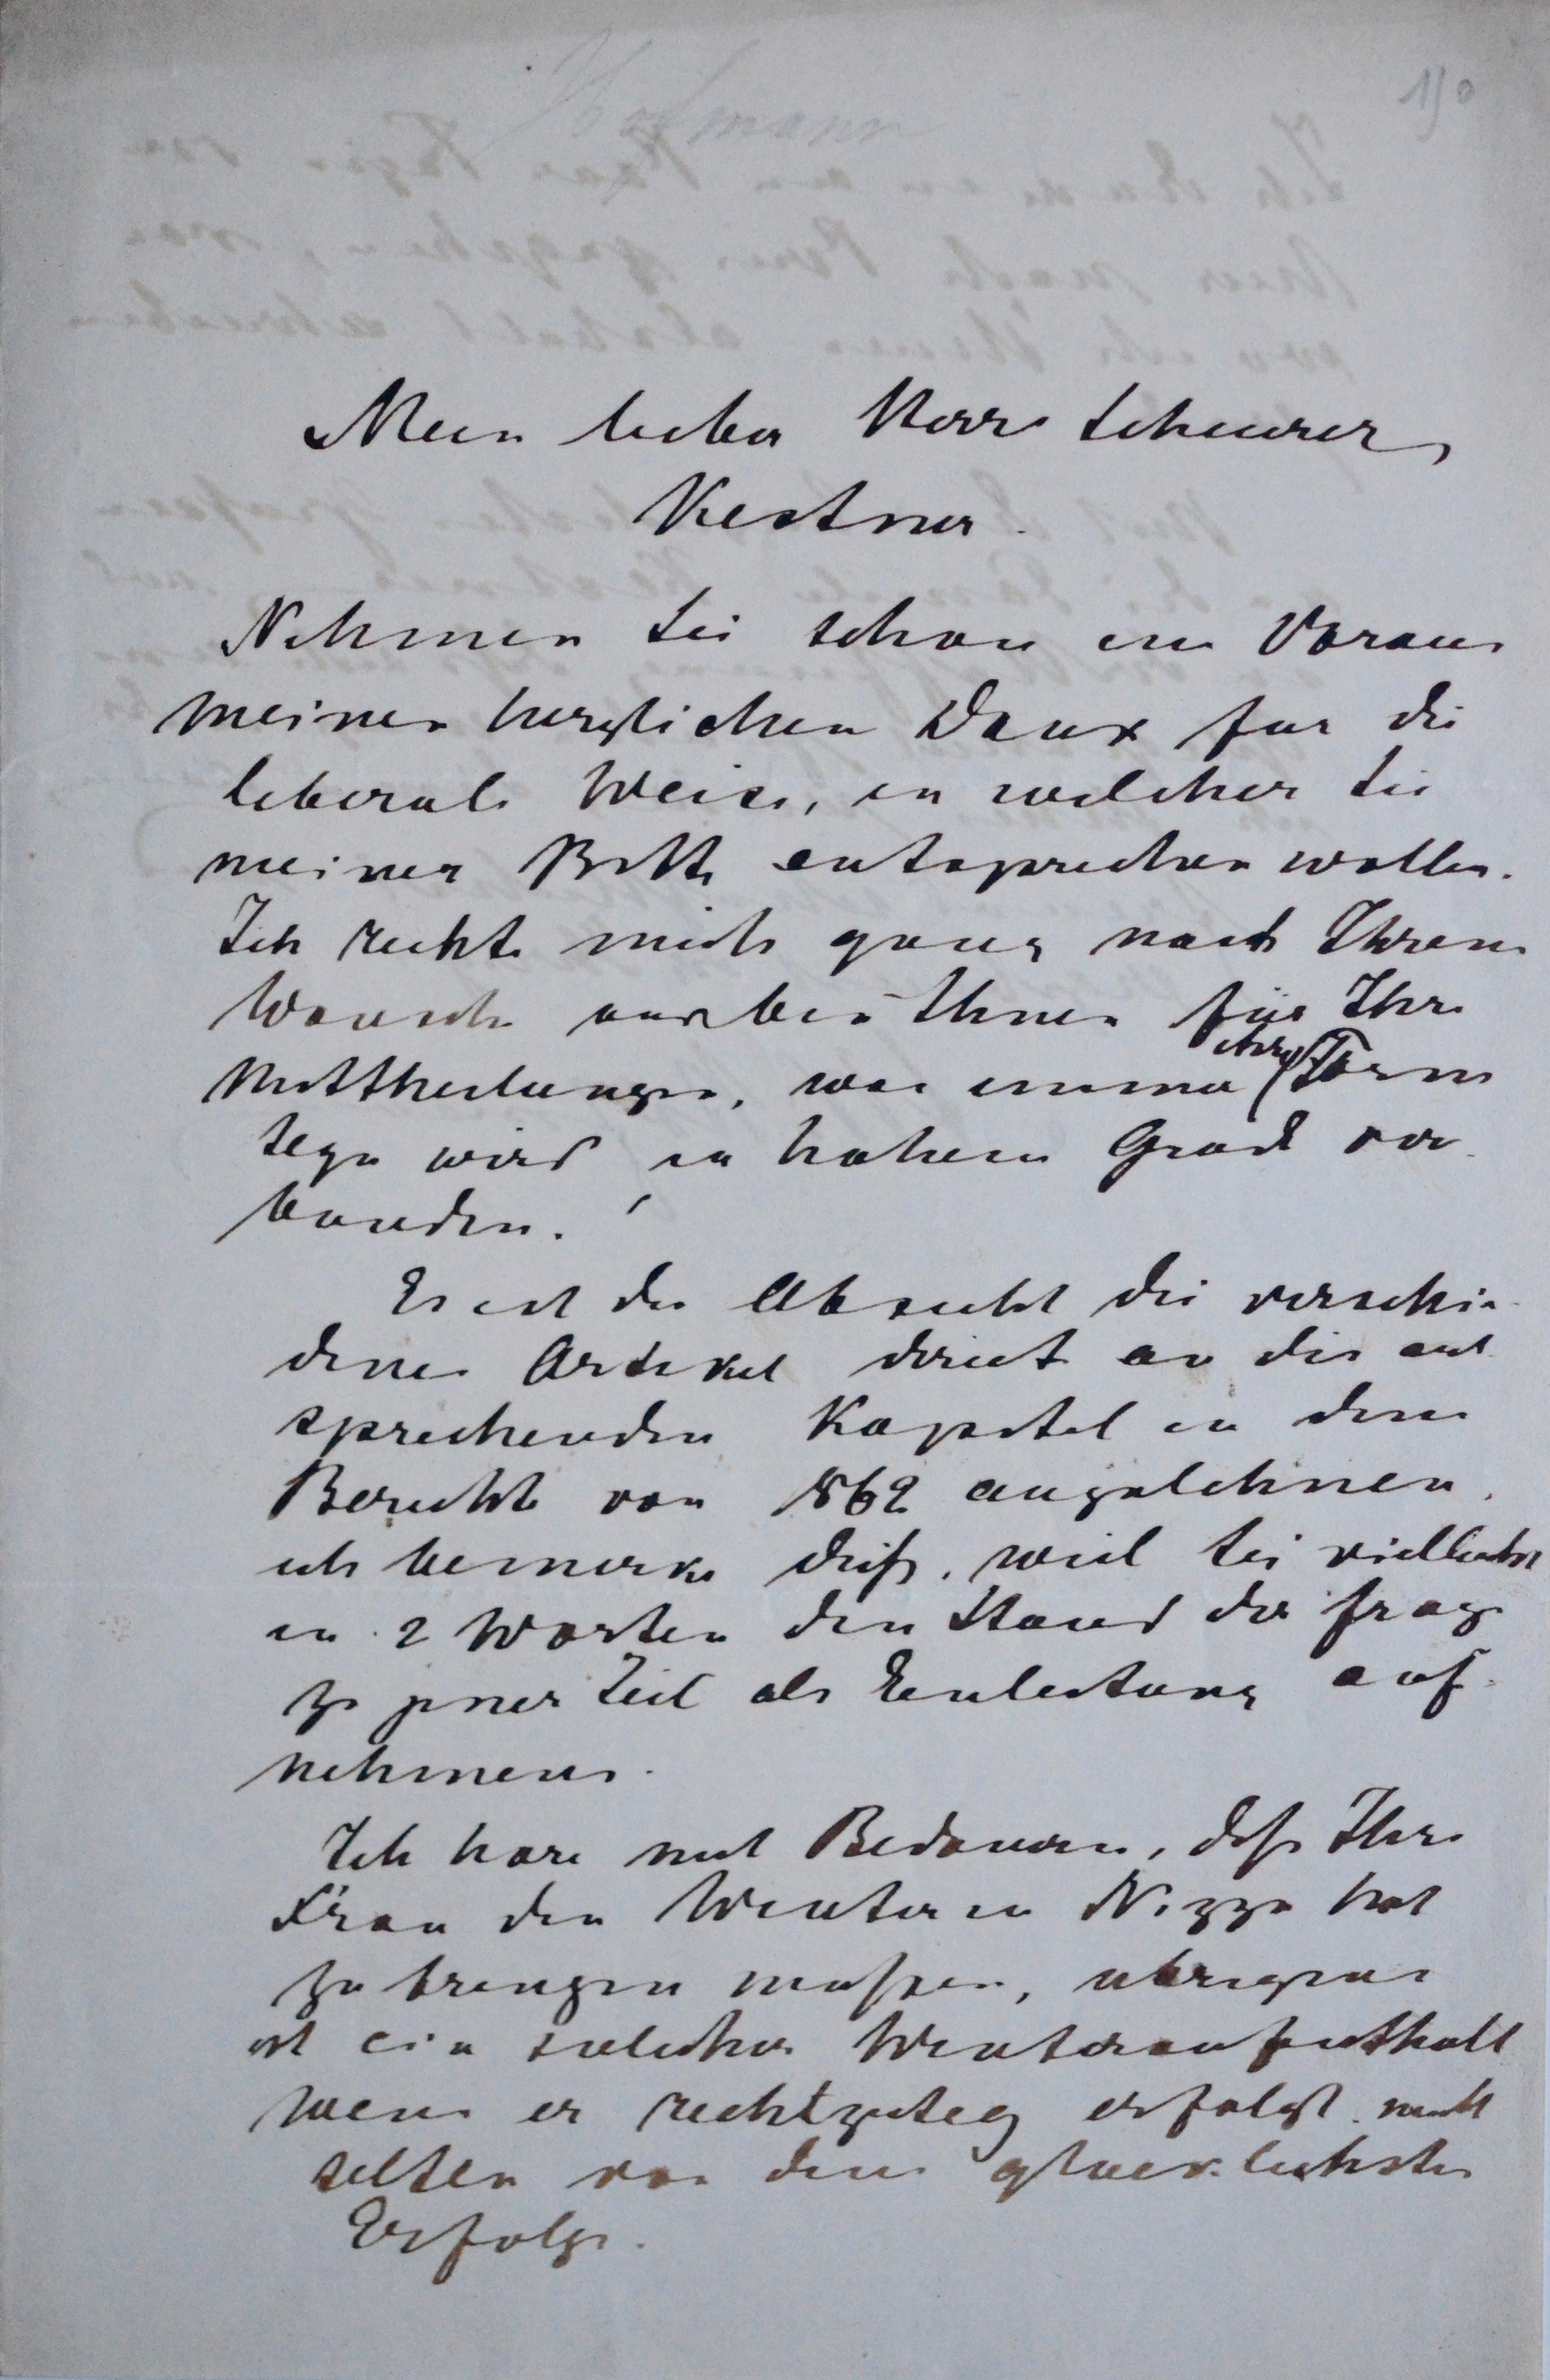 Hofmann
150
Mein lieber Herr Scheurer,
Kestner.
Nehmen Sie schon im Voraus
meinen herzlichen Dank fur die
liberale Weise, in welcher Sie
meiner Bitte entsprechen wollen.
Ich richte mich ganz nach Ihrem
Wunsch und bin Ihnen für Ihre
Mittheilungen, was immer ihre Form
seyn wird in hohem Grad ver-
bunden.
Es ist die Absicht die verschie-
denen Artikel direct an die ent-
sprechenden Kapitel in dem
Berichte von 1862 anzulehnen,
ich bemerke diess, weil Sie vielleicht
in 2 Worten den Stand der Frage
zu jener Zeit als Einleitung auf-
nehmen.
Ich höre mit Bedauern, dass Ihre
Frau den Winter in Nizza hat
zubringen müssen, übrigens
ist ein solcher Winteraufenthalt
wenn er rechtzeitig erfolgt nicht
selten von dem glucklichsten
Erfolge.